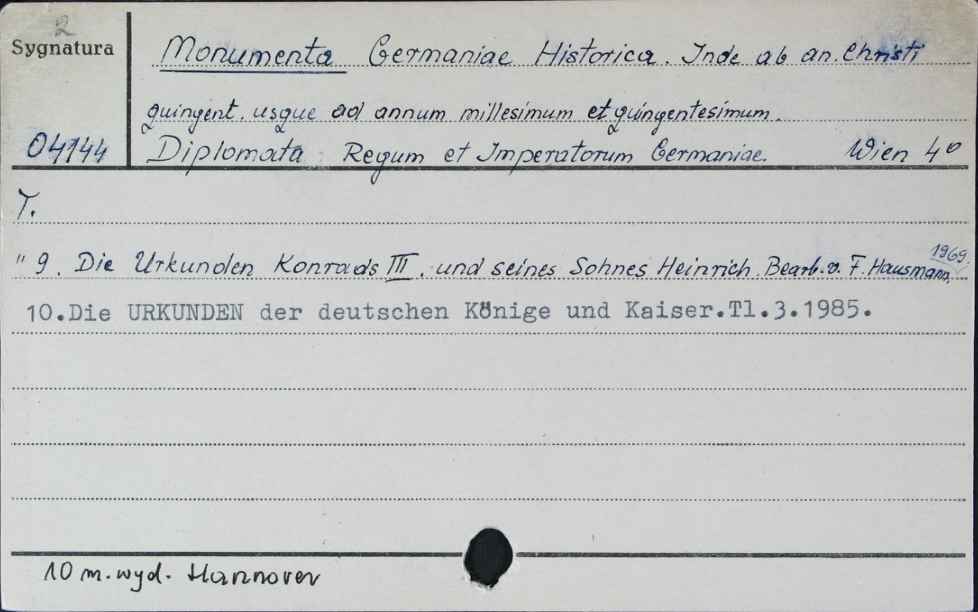 2
Sygnatura
Monumenta Germaniae Historica. Inde ab an. Christi
quingent. usque ad annum millesimum et quingentesimum.
04144
Diplomata Regum et Imperatorum Germaniae. Wien 4°
T.
" 9. Die Urkunden Konrads III. und seines Sohnes Heinrich. Bearb. v. F. Hausmann. 1969.
10.Die URKUNDEN der deutschen Könige und Kaiser.Tl.3.1985.
10 m. wyd. Hannover